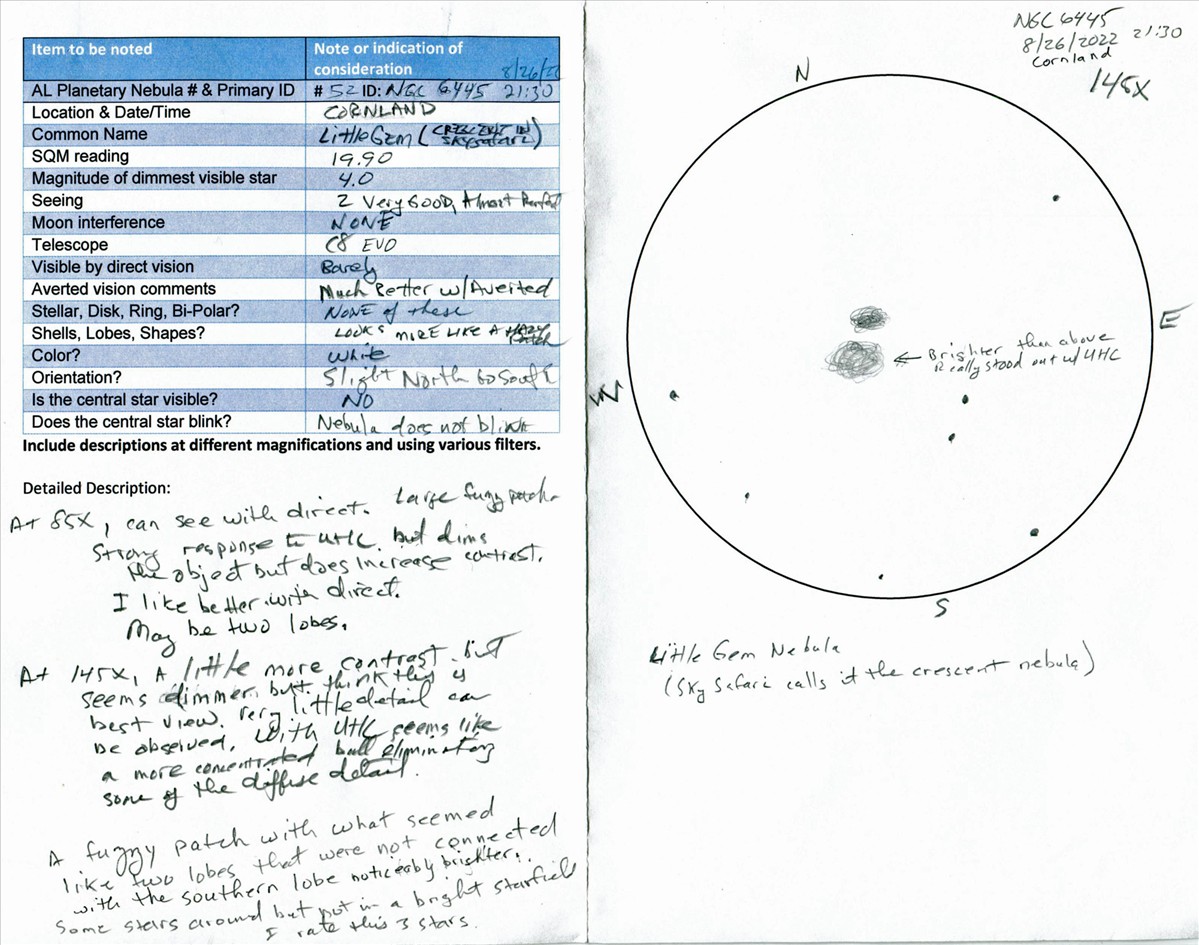 Item to be noted
Note or indication of consideration
8/26/22
AL Planetary Nebula # & Primary ID
# 52 ID: NGC 6445 21:30
Location & Date/Time
CORNLAND
Common Name
Little Gem (CRESCENT IN SKYSAFARI)
SQM reading
19.90
Magnitude of dimmest visible star
4.0
Seeing
2 Very Good, Almost Perfect
Moon interference
NONE
Telescope
C8 EVO
Visible by direct vision
Barely
Averted vision comments
Much Better w/Averted
Stellar, Disk, Ring, Bi-Polar?
NONE of these
Shells, Lobes, Shapes?
LOOKS MORE LIKE A HAZY Patch
Color?
White
Orientation?
Slight North to South
Is the central star visible?
NO
Does the central star blink?
Nebula does not blink
Include descriptions at different magnifications and using various filters.
Detailed Description:
At 85X, can see with direct. Large fuzzy patch
Strong response to UHC, but dims
the object but does increase contrast.
I like better with direct.
May be two lobes.
At 145X, A little more contrast but
seems dimmer, but think this is
best view. Very little detail can
be observed. With UHC seems like
a more concentrated ball eliminating
some of the diffuse detail.
A fuzzy patch with what seemed
like two lobes that were not connected
with the southern lobe noticebly brighter.
Some stars around but not in a bright starfield
I rate this 3 stars.
NGC 6445
8/26/2022 21:30
Cornland
145X
N
E
Brighter than above
Really stood out w/ UHC
W
S
Little Gem Nebula
(Sky Safari calls it the crescent nebula)